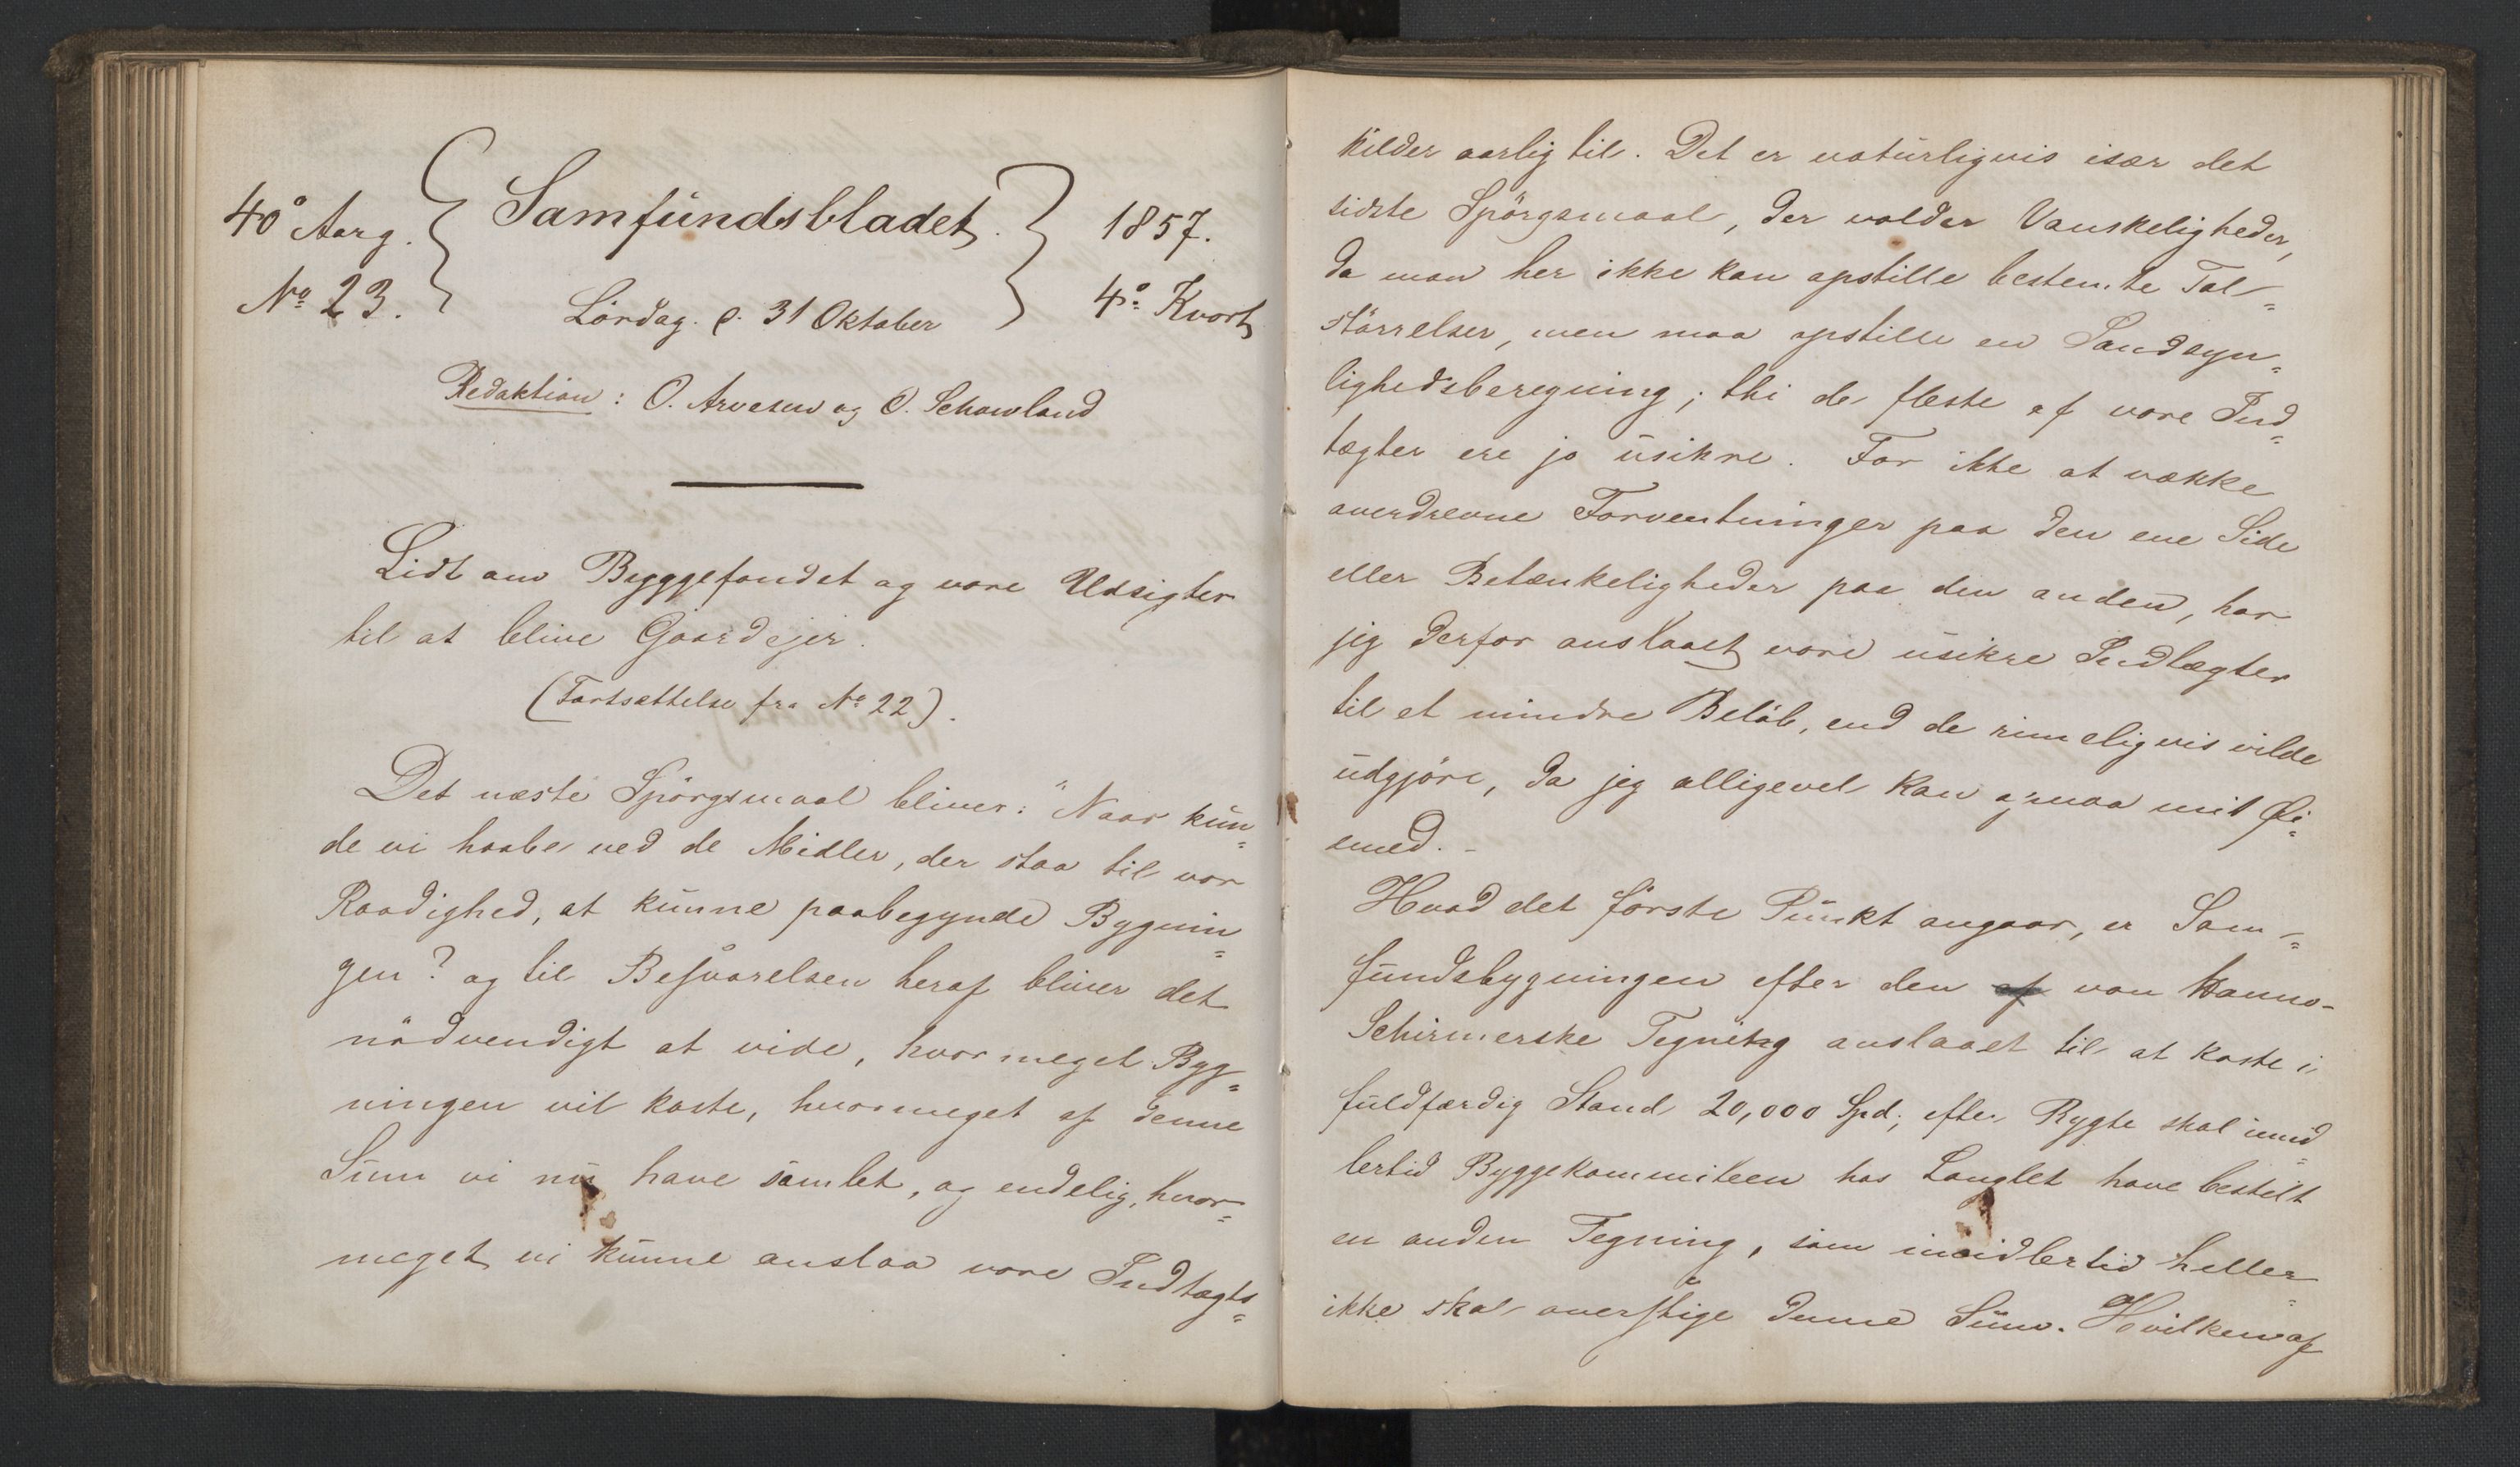 40° Aarg. Samfundsbladet. 1857.
No 23. Lördag d. 31 Oktober 4° Kvart
Redaktion: O. Arvesen og O. Schowland
Lidt om Byggefondet og vore Udsigter
til at blive Gaardejer.
(Fortsættelse fra No 22).
Det næste Spörgsmaal bliver: "Naar kun=
de vi haabe ved de Midler, der staa til vor
Raadighed, at kunne paabegynde Bygnin=
gen? og til Besvarelsen heraf bliver det
nödvendigt at vide, hvormeget Byg=
ningen vil koste, hvormeget af denne
Sum vi nu have samlet, og endelig, hvor=
meget vi kunne anslaa vore Indtægts=
kilder aarlig til. Det er naturligvis især det
sidste Spörgsmaal, der volder Vanskeligheder,
da man her ikke kan opstille bestemte Tal=
störrelser, men maa opstille en Sandsyn=
lighedsberegning; thi de fleste af vore Ind=
tægter ere jo usikre. For ikke at vække
overdrevne Forventninger paa den ene Side
eller Betænkeligheder paa den anden, har
jeg derfor anslaaet vore usikre Indtægter
til et mindre Belöb, end de rimeligvis vilde
udgjöre, da jeg alligevel kan opnaa mit Øi=
emed. -
Hvad det förste Punkt angaar, er Sam=
fundsbygningen efter den af von Hanno-
Schirmerske Tegning anslaaet til at koste i
fuldfærdig Stand 20,000 Spd; efter Rygte skal imid=
lertid Byggekommiteen hos Langlet have bestilt
en anden Tegning, som imidlertid heller=
ikke skal overstige denne Sum. Hvilken af